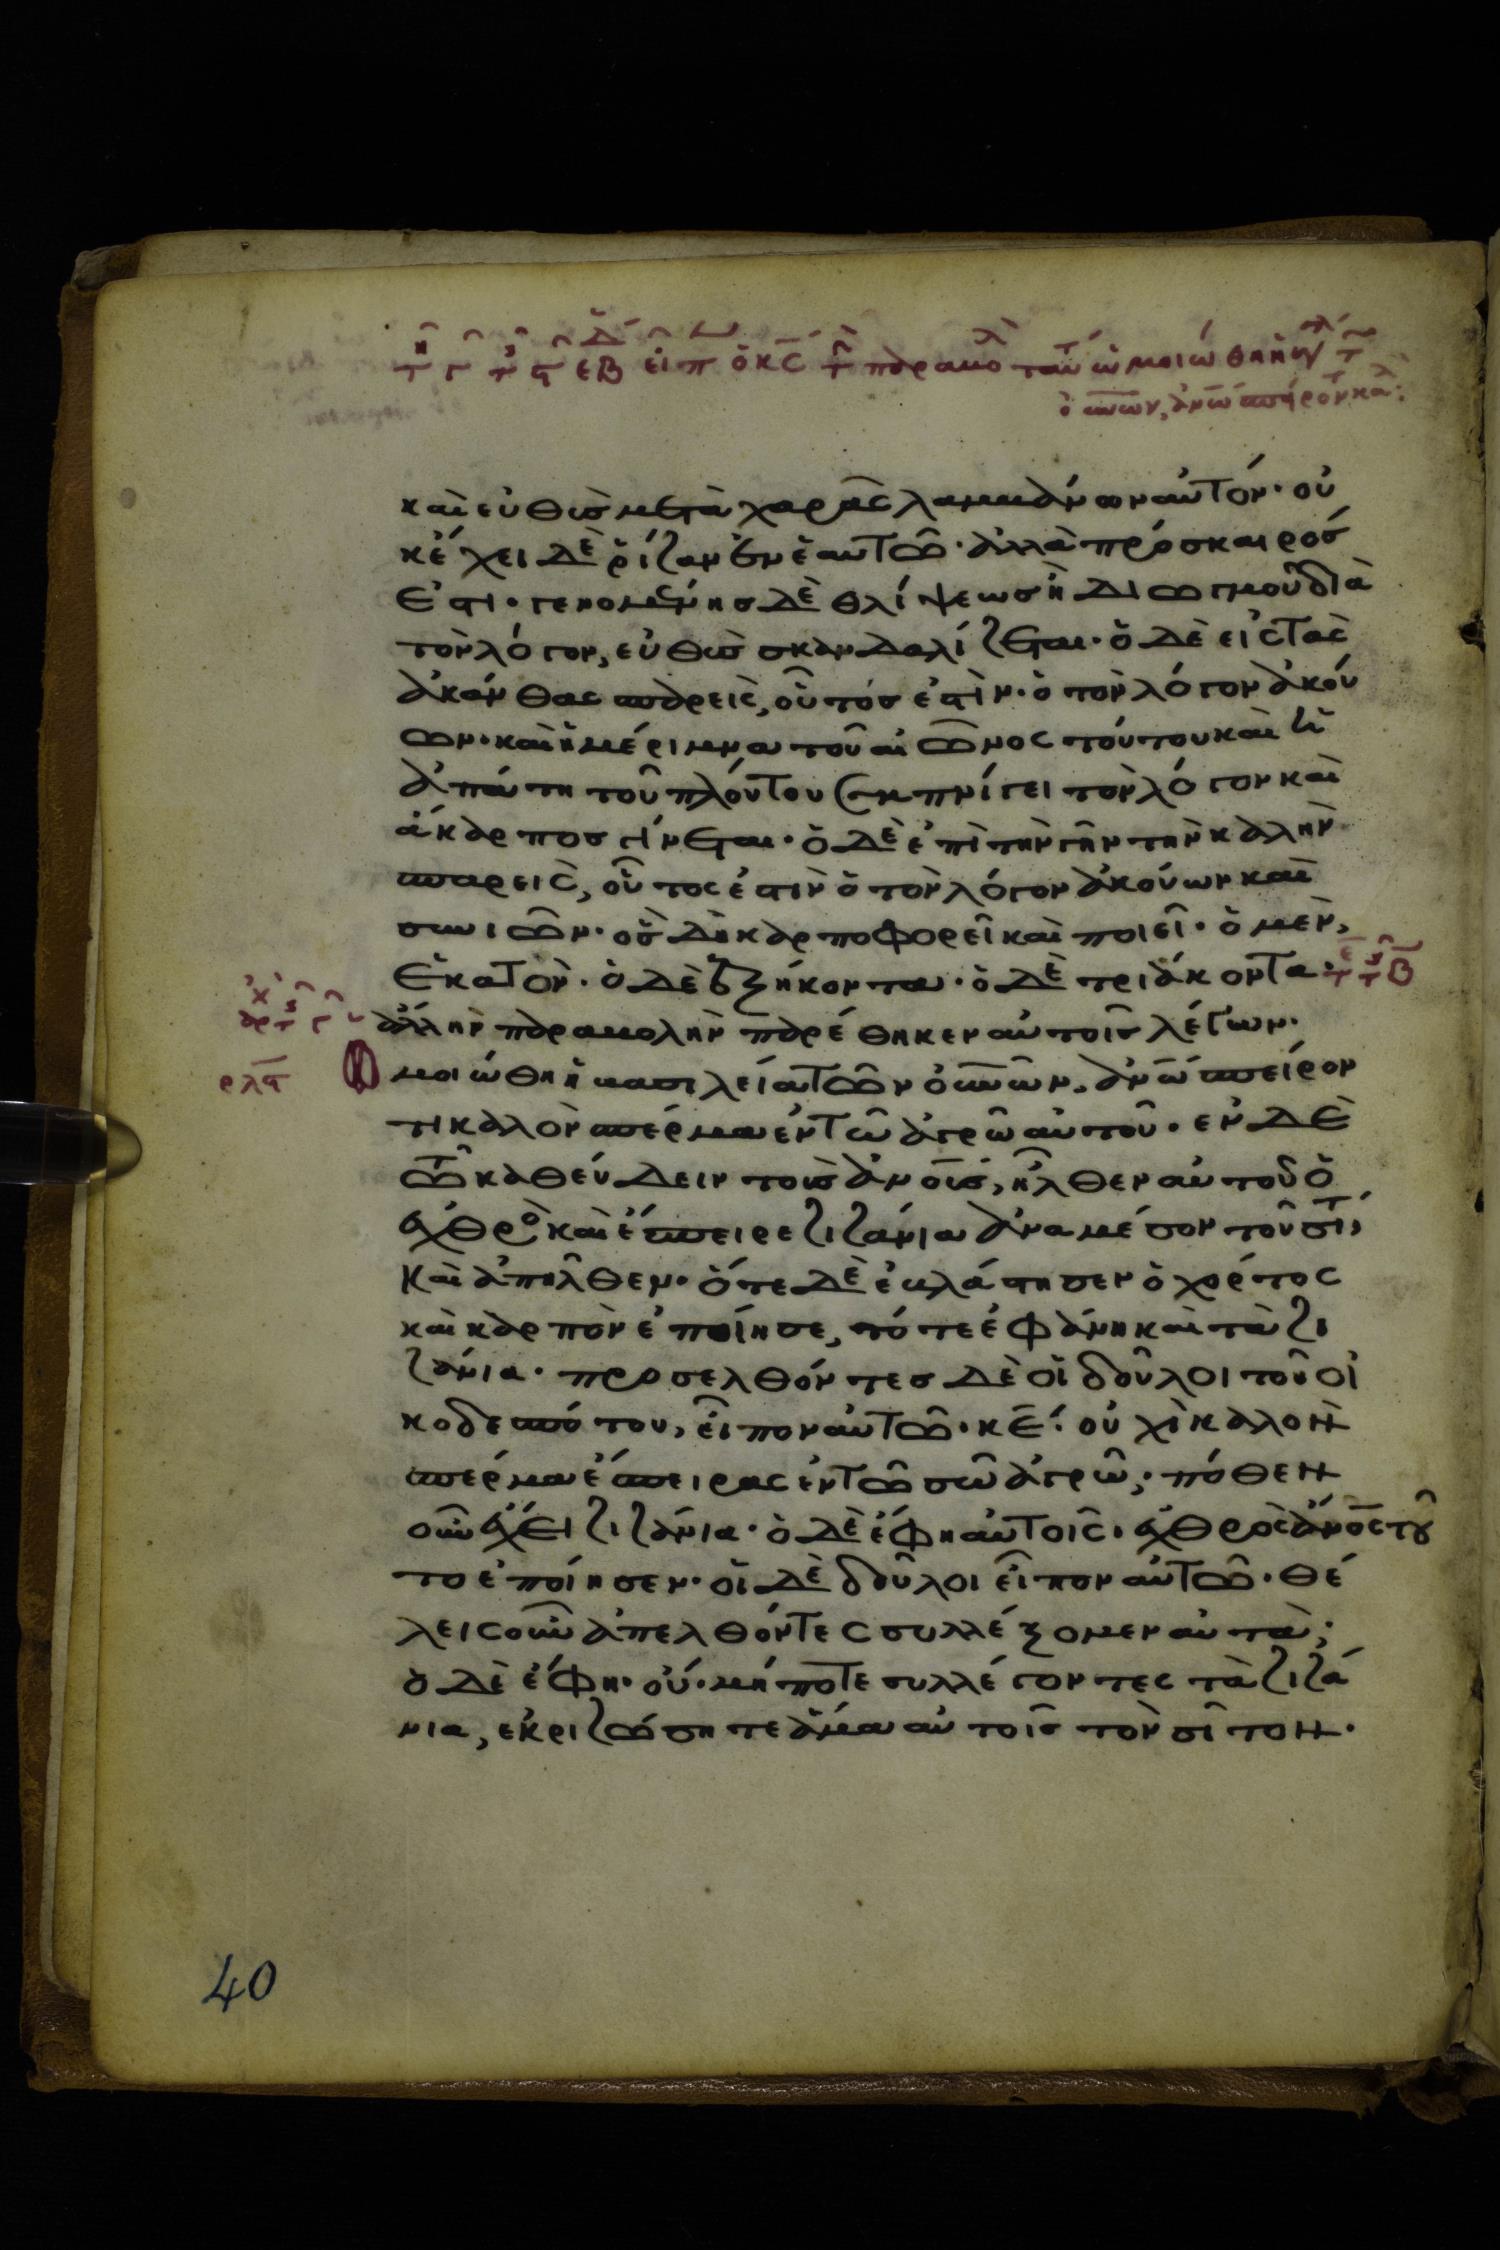 εἶπ ὁ κς τ παραβολ ταύτ ὡμοιώθη ἡ
ὁ οὐνῶν, ἀνῶ σπείροντ καλ:
καὶ εὐθὺς μετὰ χαρᾶς λαμβάνων αὐτόν· οὐ
κ ἔχει δὲ ῥίζαν ἐν ἑαυτῶ· ἀλλὰ πρόσκαιρός
ἐστι· γενομένης δὲ θλίψεως ἢ διωγμοῦ διὰ
τὸν λόγον, εὐθὺς σκανδαλίζεται· ὁ δὲ εἰς τὰς
ἀκάνθας σπαρεὶς, οὗτός ἐστιν· ὁ τὸν λόγον ἀκού
ων· καὶ ἡ μέριμνα τοῦ αἰῶνος τούτου καὶ ἡ
ἀπάτη τοῦ πλούτου συμπνίγει τὸν λόγον καὶ
ἄκαρπος γίνεται· ὁ δὲ ἐπὶ τὴν γῆν τὴν καλὴν
σπαρεὶς, οὗτος ἐστιν ὁ τὸν λόγον ἀκούων καὶ
συνιῶν· ὃς δὴ καρποφορεῖ καὶ ποιεῖ· ὁ μὲν,
ἑκατὸν· ὁ δὲ ἑξήκοντα· ὁ δὲ τριάκοντα·
ἄλλην παραβολὴν παρέθηκεν αὐτοῖς λέγων·
ρλϛ Ὡμοιώθη ἡ βασιλεία τῶν οὐνῶν, ἀνῶ σπείρον
τι καλὸν σπέρμα ἐν τῶ ἀγρῶ αὐτοῦ· ἐν δὲ
τῶ καθεύδειν τοὺς ἀνους, ἦλθεν αὐτοῦ ὁ
ἐχθρὸ καὶ ἔσπειρε ζιζάνια ἀνα μέσον τοῦ σίτ,
καὶ ἀπῆλθεν· ὅτε δὲ ἐβλάστησεν ὁ χόρτος
καὶ καρπὸν ἐποίησε, τότε ἐφάνη καὶ τὰ ζι
ζάνια· προσελθόντες δὲ οἱ δοῦλοι τοῦ οἰ
κοδεσπότου, εἶπον αὐτῶ· κε· οὐχὶ καλὸν
σπέρμα ἔσπειρας ἐν τῶ σῶ ἀγρῶ; πόθεν
οὖν ἔχει ζιζάνια· ὁ δὲ ἔφη αὐτοῖς· ἐχθρὸς ἄνος τοῦ
το ἐποίησεν· οἱ δὲ δοῦλοι εἶπον αὐτῶ· θέ
λεις οὖν ἀπελθόντες συλλέξομεν αὐτὰ;
ὁ δὲ ἔφη· οὔ· μήποτε συλλέγοντες τὰ ζιζά
νια, ἐκριζώσητε ἅμα αὐτοῖς τὸν σῖτον·
40